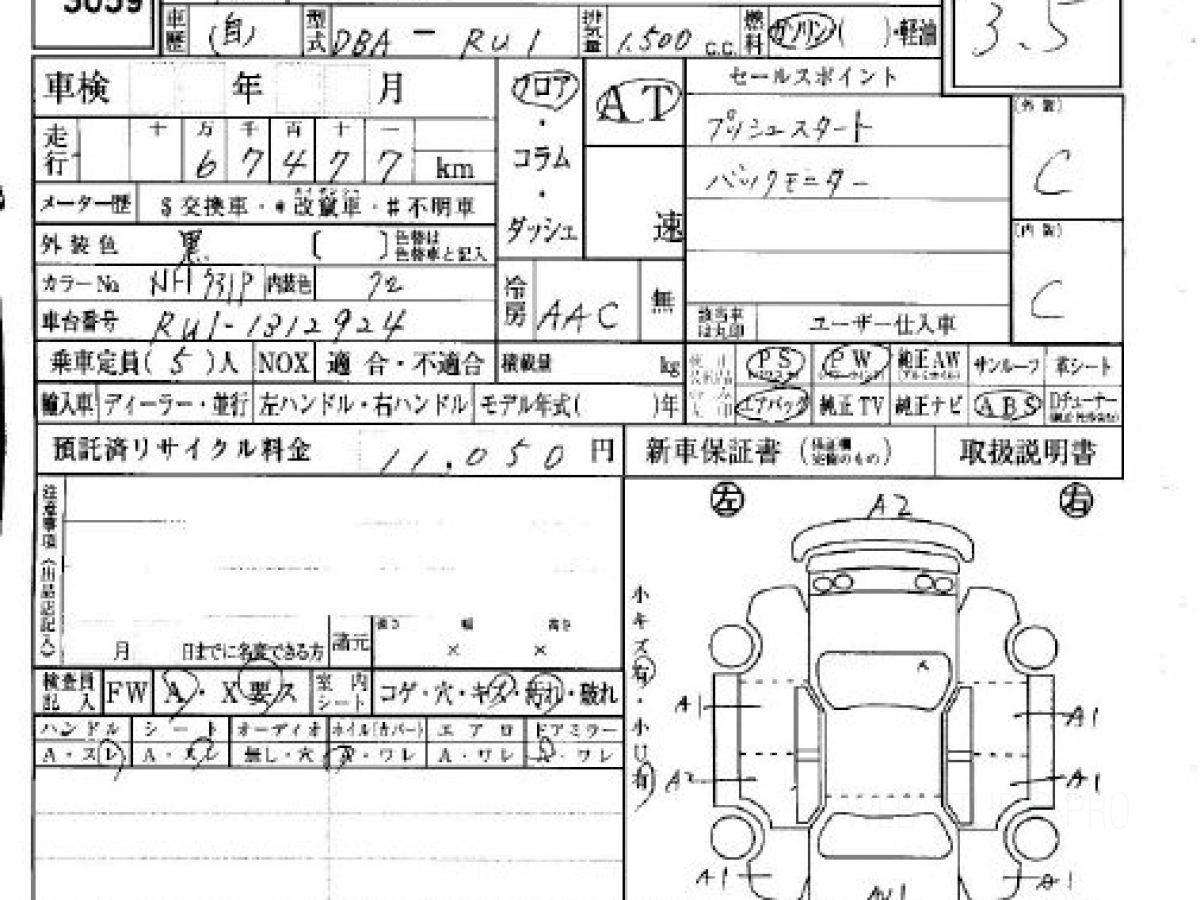 5059
車歴 (自) 型式 DBA - RU1 排気量 1,500 C.C. 燃料 ガソリン( )・軽油 3.5
車検 年 月 フロア AT セールスポイント
(外装)
走行 十 万 千 百 十 一 ・ プッシュスタート
6 7 4 7 7 km コラム C
メーター歴 $ 交換車・* 改竄車・# 不明車 ・ バックモニター
外装色 黒 ( ) 色替は色替車と記入 ダッシュ 速 (内装)
カラーNo NH731P 内装色 冷房 AAC 無 C
車台番号 RU1-1312924 該当車は丸印 ユーザー仕入車
乗車定員( 5 )人 NOX 適合・不適合 積載量 kg PS PW 純正AW サンルーフ 革シート
輸入車 ディーラー・並行 左ハンドル・右ハンドル モデル年式( )年 エアバッグ 純正TV 純正ナビ ABS Dチューナー
預託済リサイクル料金 11,050 円 新車保証書 取扱説明書
注意事項(出品店記入) 左 A2 右
月 日までに名変できる方 諸元 長さ × 幅 × 高さ
小キズ有・小U有
検査員記入 FW A・X要ス 室内シート コゲ・穴・キズ・汚れ・破れ
ハンドル シート オーディオ ホイル(カバー) エアロ ドアミラー
A・スレ A・スレ 無し・穴 A・ワレ A・ワレ A・ワレ
A1 A1
A2 A1
A1 A1